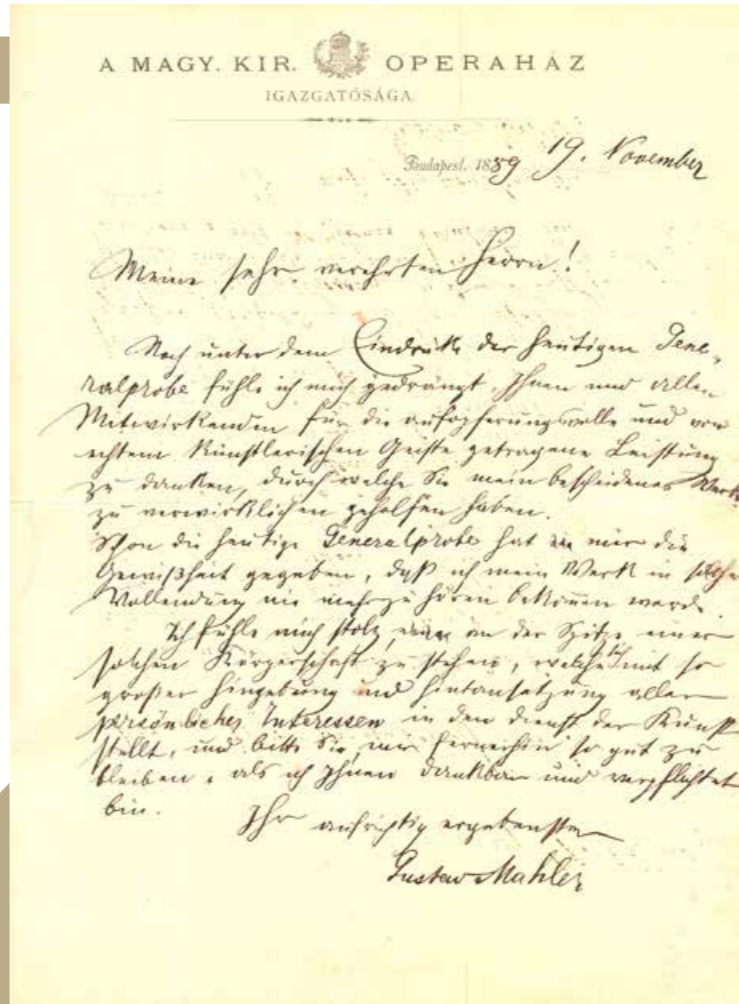 A MAGY. KIR. OPERAHÁZ
IGAZGATÓSÁGA.
Budapest, 1889 19. November
Meine sehr verehrten Herrn!
Noch unter dem Eindruck der heutigen Gene-
ralprobe fühle ich mich gedrängt, Ihnen und allen
Mitwirkenden für die aufopferungsvolle und von
echtem künstlerischen Geiste getragene Leistung
zu danken, durch welche Sie mein bescheidenes Werk
zu verwirklichen geholfen haben.
Schon die heutige Generalprobe hat in mir die
Gewißheit gegeben, daß ich mein Werk in solcher
Vollendung nie mehr zu hören bekommen werde.
Ich fühle mich stolz, an der Spitze einer
solchen Körperschaft zu stehen, welche sich mit so
großer Hingebung und Hintansetzung aller
persönlichen Interessen in den Dienst der Kunst
stellt, und bitte Sie, mir fernerhin so gut zu
bleiben, als ich Ihnen dankbar und verpflichtet
bin.
Ihr aufrichtig ergebenster
Gustav Mahler